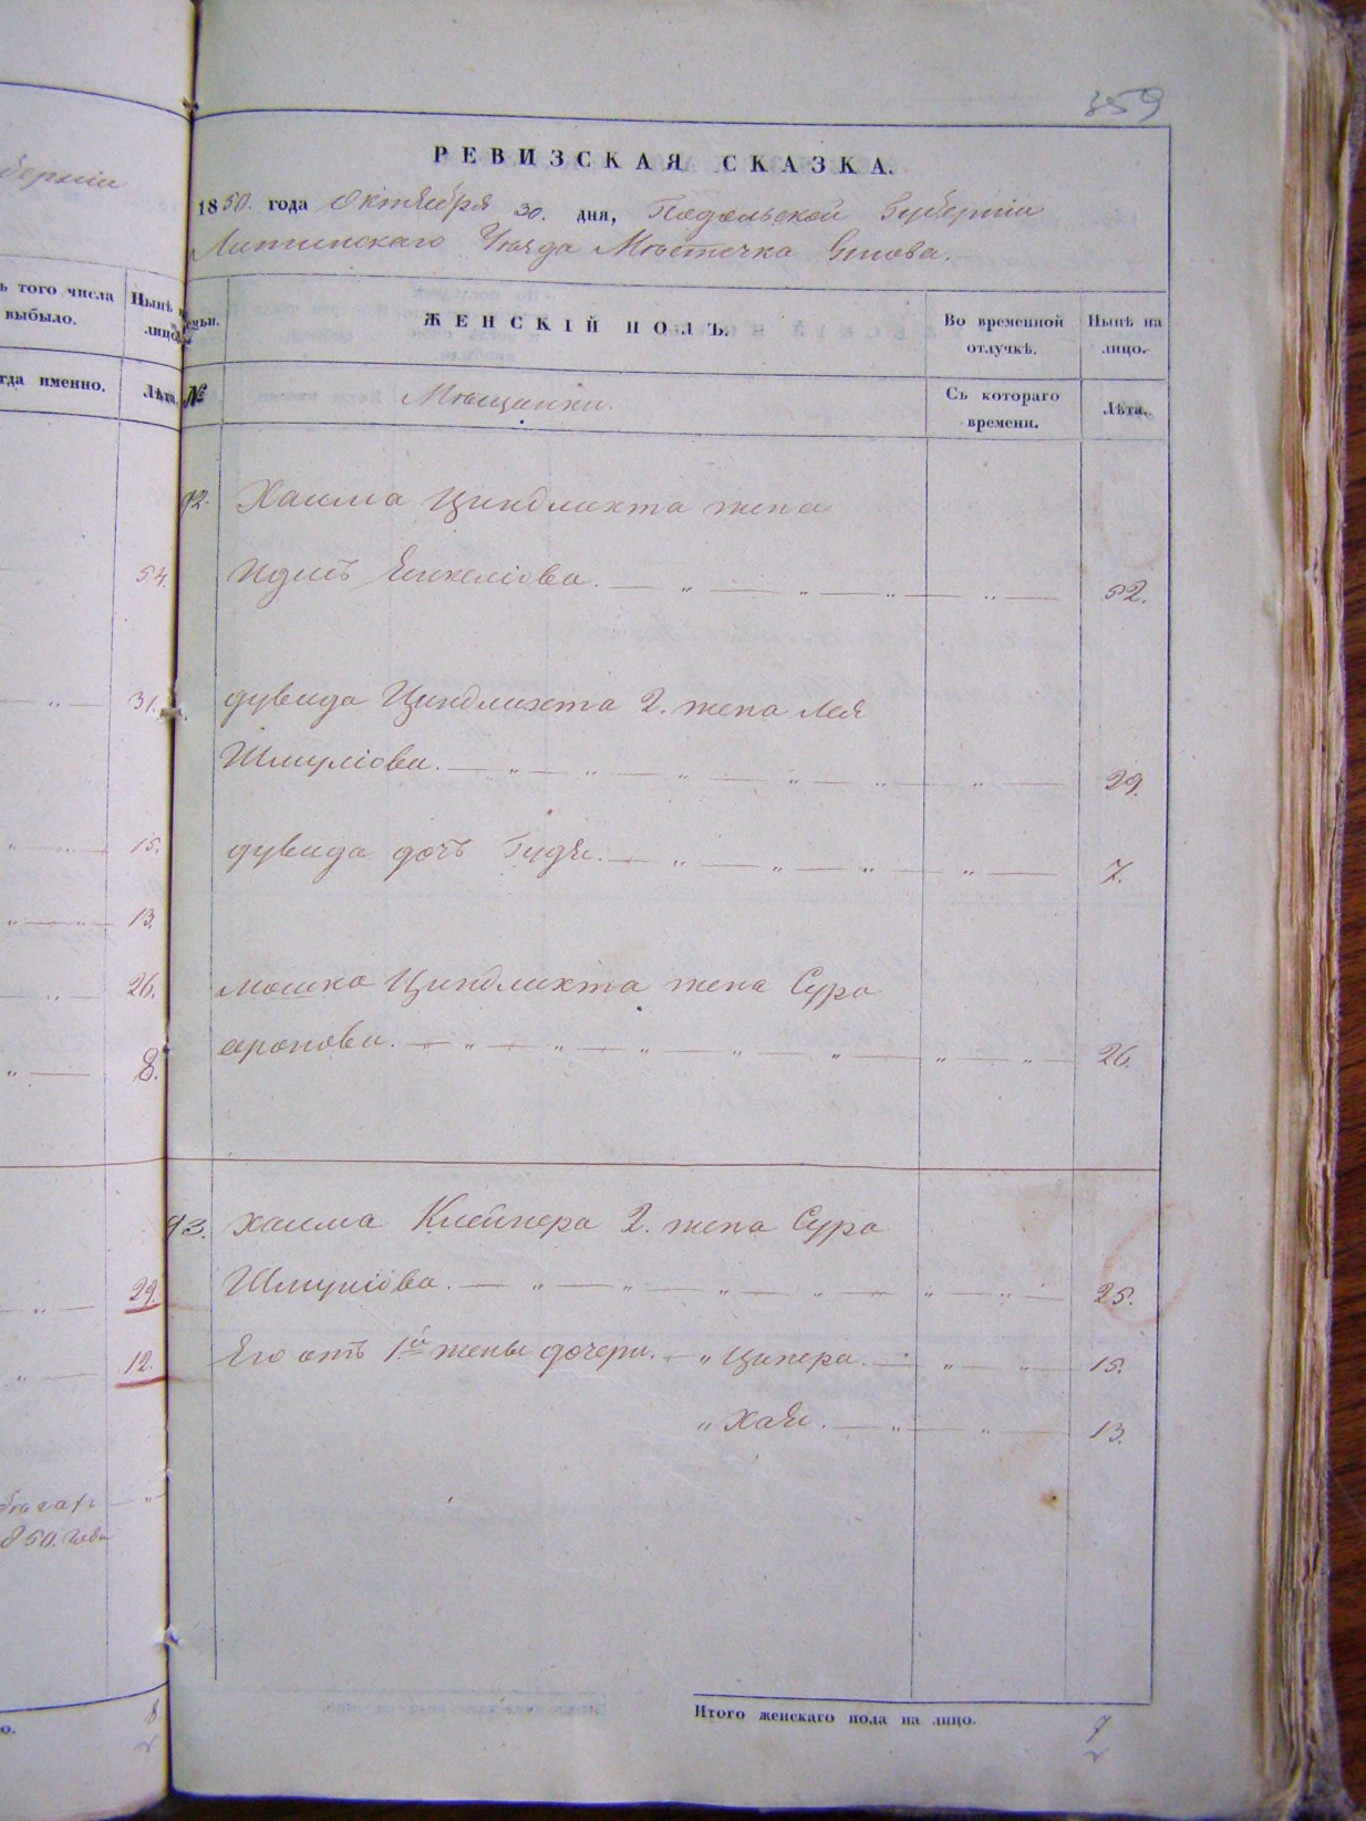 359
РЕВИЗСКАЯ СКАЗКА.
1850. года Октября 30. дня, Подольской Губерніи
Литинскаго Уѣзда Мѣстечка
берніи
ъ того числа
выбыло.
Нынѣ
лицо
гда именно.
Лѣта.
ЖЕНСКІЙ ПОЛЪ.
Во временной
отлучкѣ.
Нынѣ на
лицо.
№
Мѣщанки.
Съ котораго
времени.
Лѣта.
92. Хаима Циндлихта жена
54.
Идисъ Янкеліова. 52.
31.
дувида Циндлихта 2. жена Лея
Шмуліова. 29.
15.
дувида дочь Гидя. 7.
13.
26.
мошка Циндлихта жена Сура
8.
аронова. 26.
93. хаима Клейнера 2. жена Сура
29.
Шмуліова. 25.
12.
Его отъ 1й жены дочери. „ Ципера. 15.
„ Хая. 13.
850. года
8
Итого женскаго пола на лицо.
7